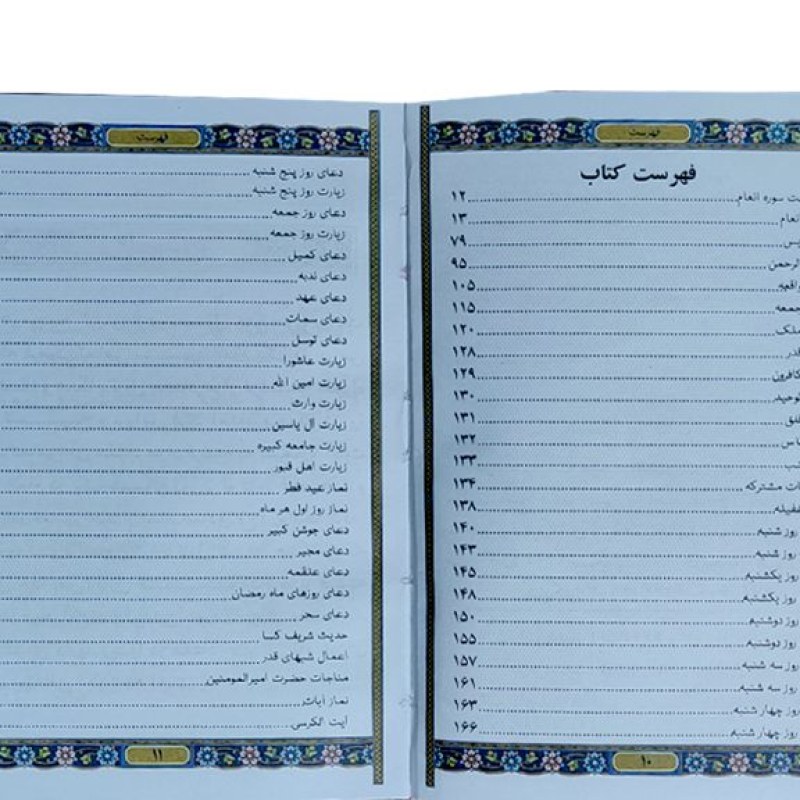 فهرست
فهرست کتاب
ت سوره انعام ۱۲
نعام ۱۳
یس ۷۹
لرحمن ۹۵
واقعه ۱۰۵
جمعه ۱۱۵
ملک ۱۲۰
قدر ۱۲۸
کافرون ۱۲۹
توحید ۱۳۰
لق ۱۳۱
اس ۱۳۲
۱۳۳
ات مشترکه ۱۳۴
غفیله ۱۳۸
روز شنبه ۱۴۰
روز شنبه ۱۴۳
روز یکشنبه ۱۴۵
روز یکشنبه ۱۴۸
روز دوشنبه ۱۵۰
روز دوشنبه ۱۵۵
روز سه شنبه ۱۵۷
روز سه شنبه ۱۶۱
روز چهارشنبه ۱۶۳
روز چهارشنبه ۱۶۶
۱۰
فهرست
دعای روز پنج شنبه
زیارت روز پنج شنبه
دعای روز جمعه
زیارت روز جمعه
دعای کمیل
دعای ندبه
دعای عهد
دعای سمات
دعای توسل
زیارت عاشورا
زیارت امین الله
زیارت وارث
زیارت آل یاسین
زیارت جامعه کبیره
زیارت اهل قبور
نماز عید فطر
نماز روز اول هر ماه
دعای جوشن کبیر
دعای مجیر
دعای علقمه
دعای روزهای ماه رمضان
دعای سحر
حدیث شریف کسا
اعمال شبهای قدر
مناجات حضرت امیرالمومنین
نماز آیات
آیت الکرسی
۱۱